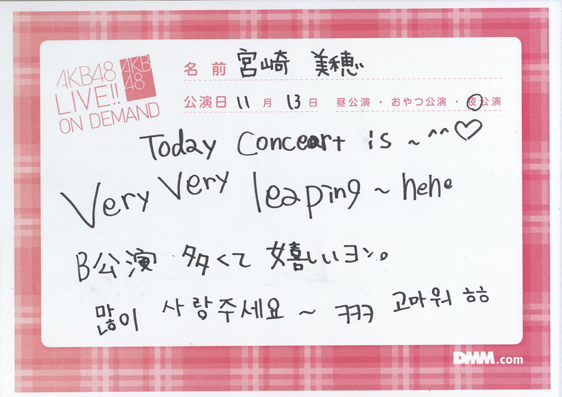 AKB48
LIVE!!
ON DEMAND
AKB
48
名前 宮崎 美穂
公演日 11月13日 昼公演・おやつ公演・夜公演
Today Conceart is ~ ^^♡
Very Very leaping ~ hehe
B公演 多くて 嬉しいヨン。
많이 사랑주세요 ~ ㅋㅋㅋ 고마워 ㅎㅎ
DMM.com